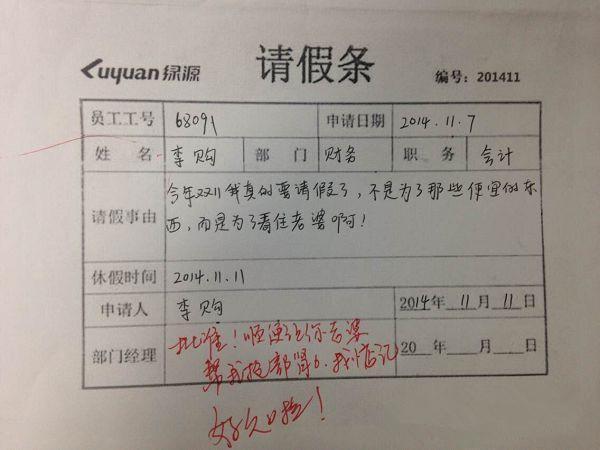 Luyuan 绿源
请假条
编号：201411
员工工号 68091 申请日期 2014.11.7
姓名 李购 部门 财务 职务 会计
请假事由 今年双11我真的要请假了，不是为了那些便宜的东
西，而是为了看住老婆啊！
休假时间 2014.11.11
申请人 李购 2014年11月11日
部门经理 批准！顺便让你老婆
帮我抢部肾6. 我惦记
好久啦！
20 年 月 日